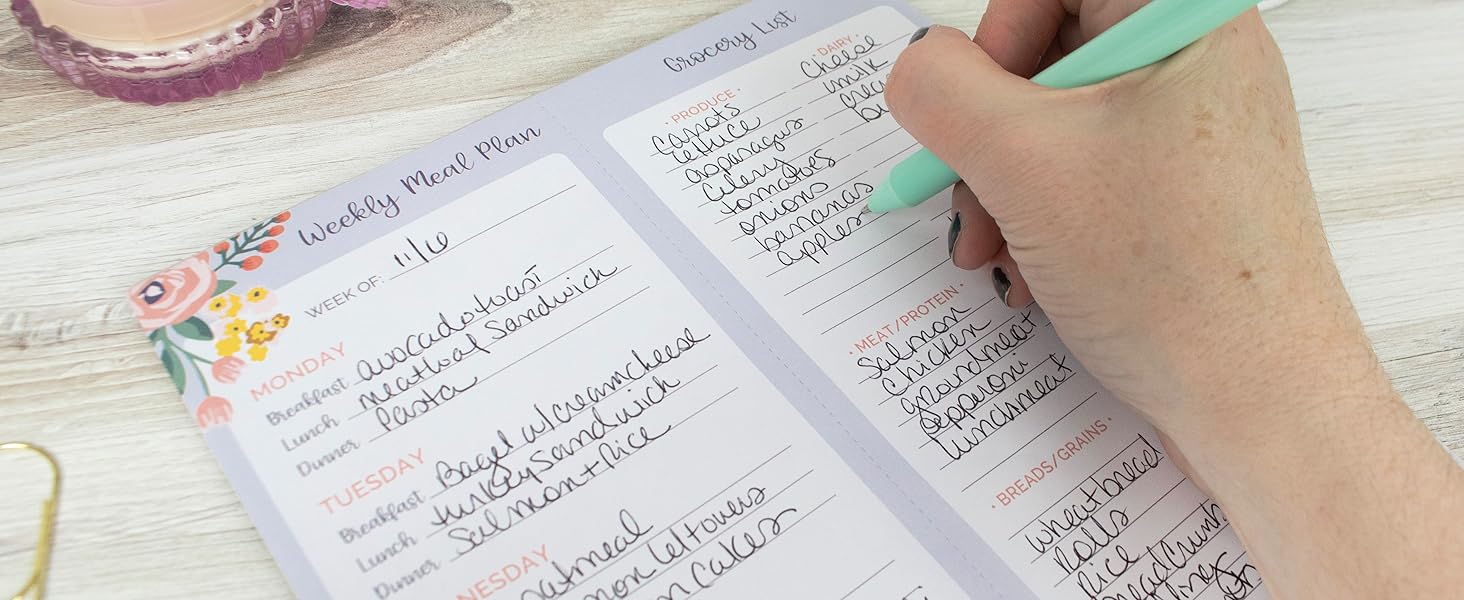 Weekly Meal Plan
WEEK OF: 11/6
MONDAY
Breakfast avocado toast
Lunch meatloaf sandwich
Dinner Pasta
TUESDAY
Breakfast Bagel w/ creamcheese
Lunch turkey sandwich
Dinner Salmon + Rice
NESDAY
oatmeal
leftovers
cakes
Grocery List
· PRODUCE ·
Carrots
lettuce
asparagus
Celery
tomatoes
onions
bananas
apples
· DAIRY ·
cheese
milk
· MEAT/PROTEIN ·
Salmon
Chicken
groundmeat
Pepperoni
lunchmeat
· BREADS/GRAINS ·
wheatbread
Rolls
Rice